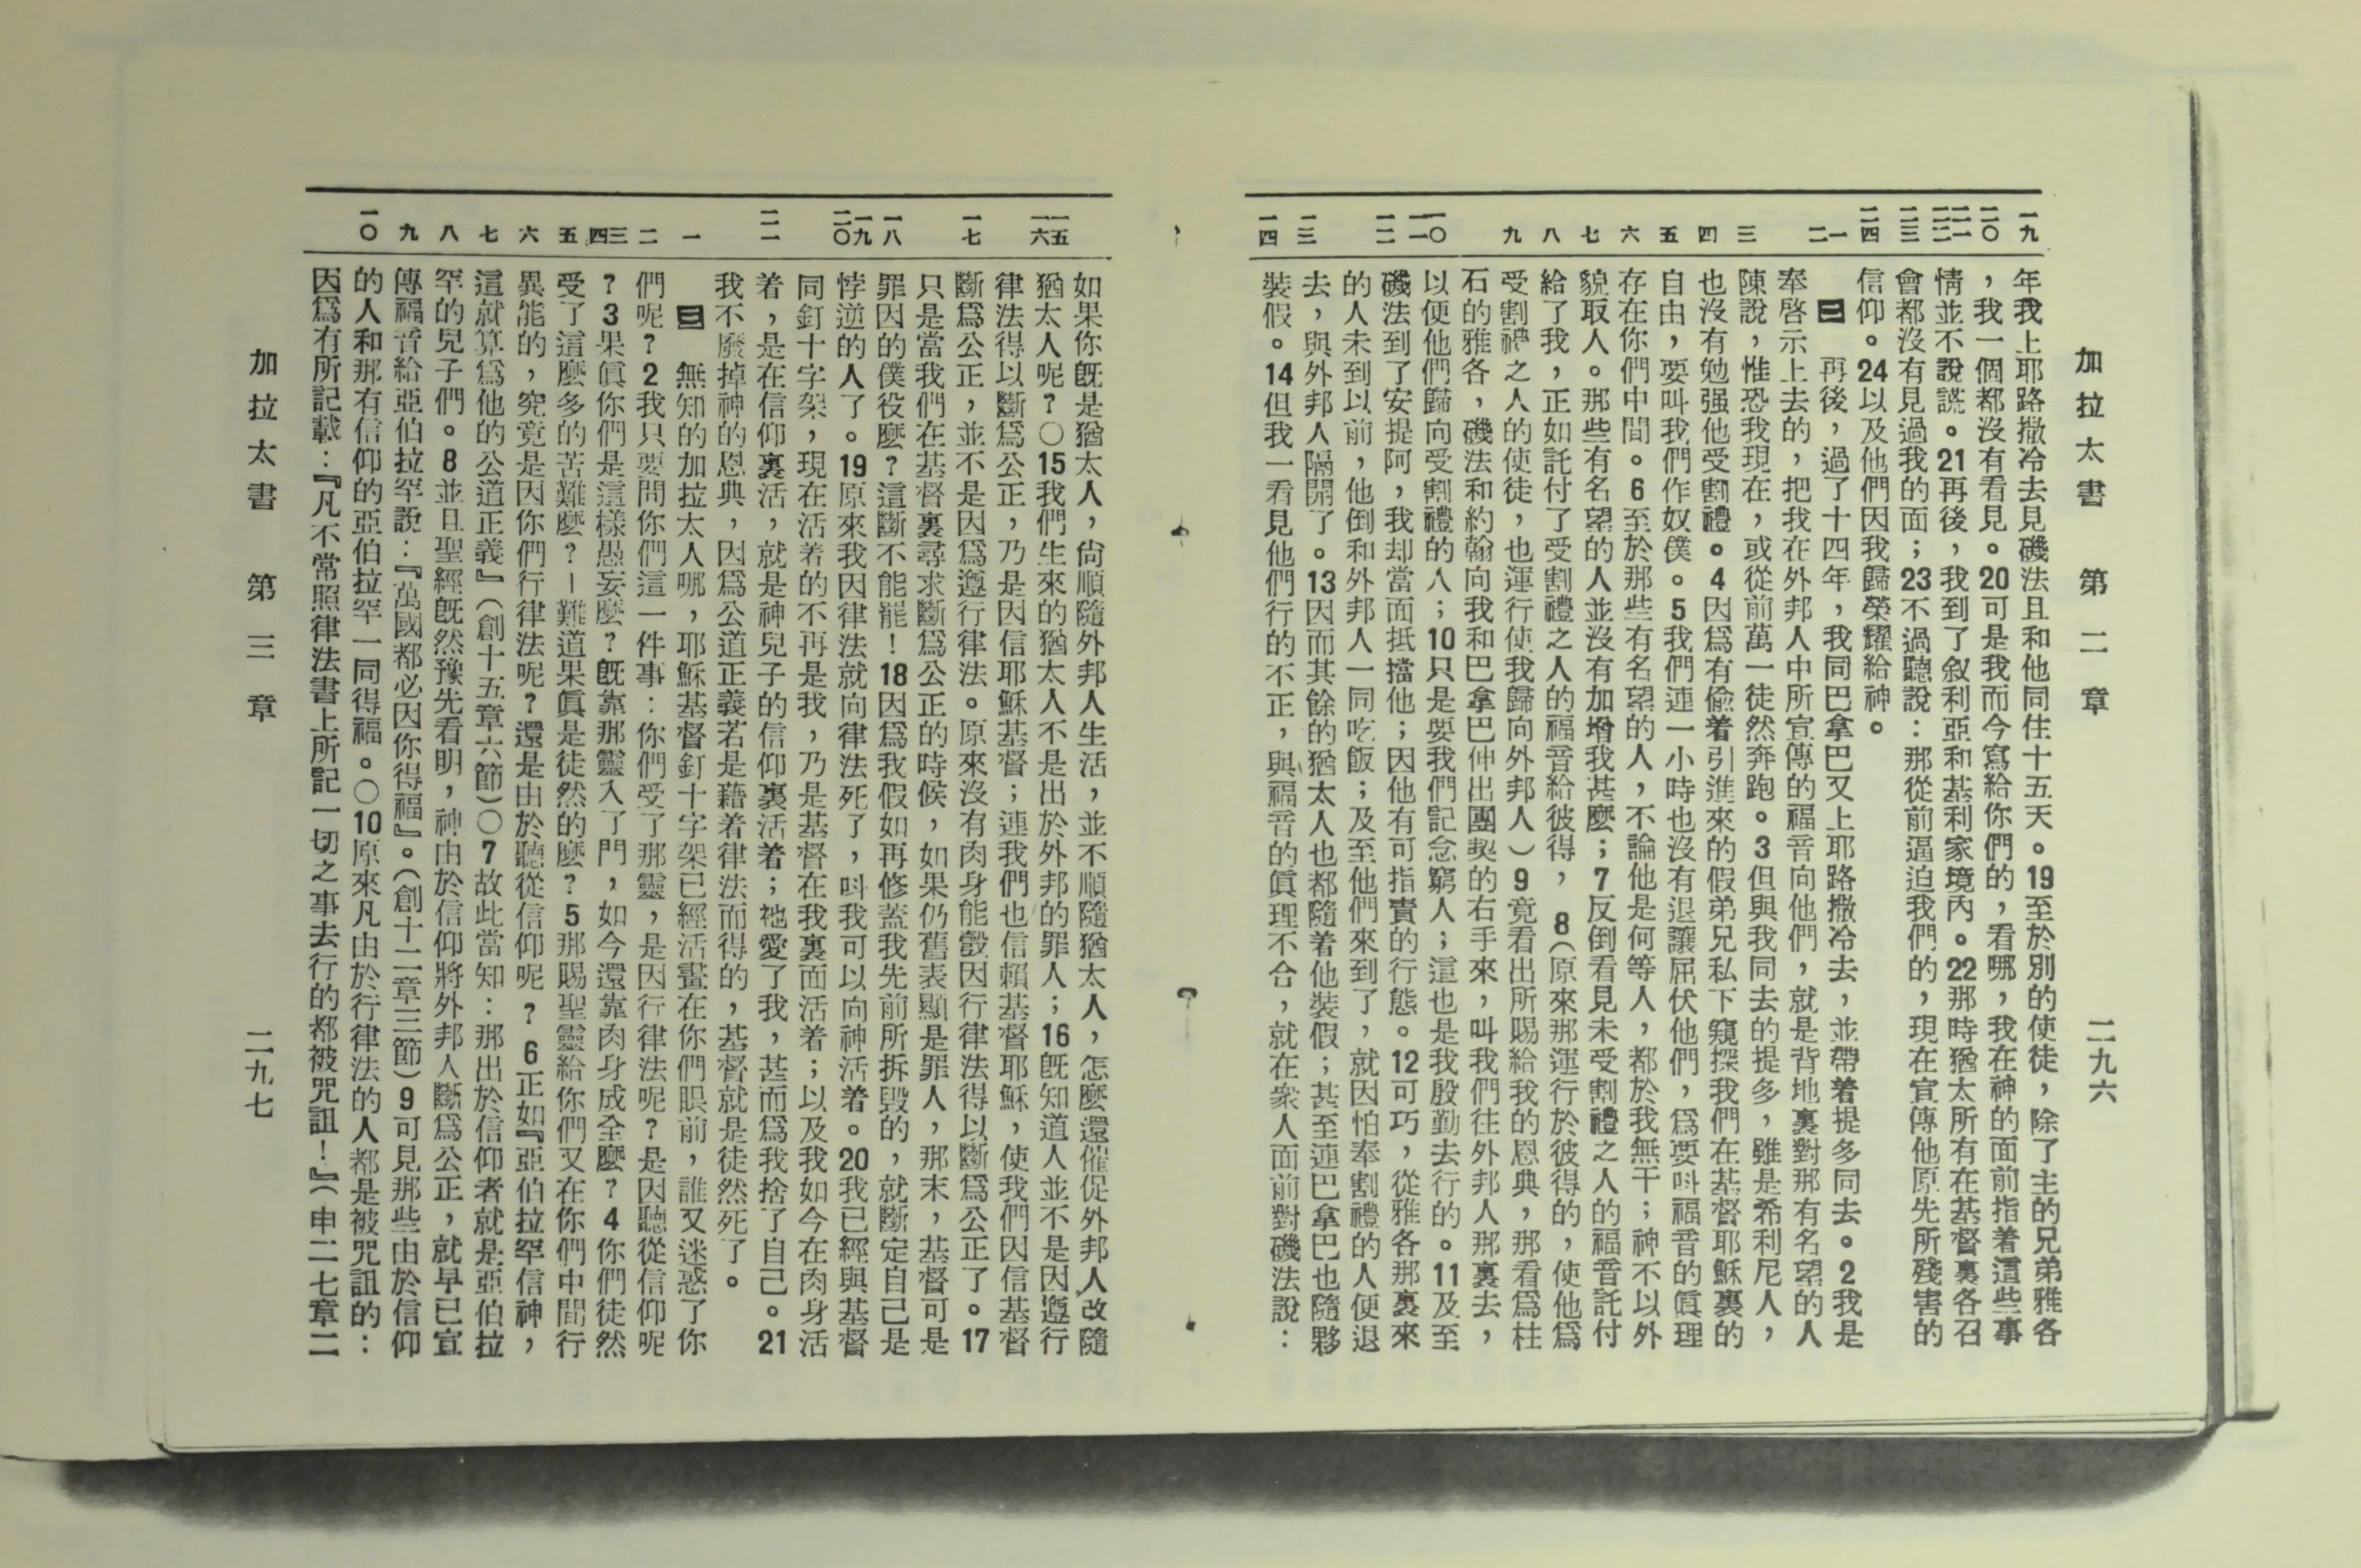 加拉太書　第二章　二九六
一九　二〇　二一　二二　二三　二四　一　二　三　四　五　六　七　八　九　一〇　一一　一二　一三　一四
年我上耶路撒冷去見磯法且和他同住十五天。19至於別的使徒，除了主的兄弟雅各
，我一個都沒有看見。20可是我而今寫給你們的，看哪，我在神的面前指着這些事
情並不說謊。21再後，我到了敘利亞和基利家境內。22那時猶太所有在基督裏各召
會都沒有見過我的面；23不過聽說：那從前逼迫我們的，現在宣傳他原先所殘害的
信仰。24以及他們因我歸榮耀給神。
二　再後，過了十四年，我同巴拿巴又上耶路撒冷去，並帶着提多同去。2我是
奉啓示上去的，把我在外邦人中所宣傳的福音向他們，就是背地裏對那有名望的人
陳說，惟恐我現在，或從前萬一徒然奔跑。3但與我同去的提多，雖是希利尼人，
也沒有勉强他受割禮。4因爲有偷着引進來的假弟兄私下窺探我們在基督耶穌裏的
自由，要叫我們作奴僕。5我們連一小時也沒有退讓屈伏他們，爲要叫福音的眞理
存在你們中間。6至於那些有名望的人，不論他是何等人，都於我無干；神不以外
貌取人。那些有名望的人並沒有加增我甚麼；7反倒看見未受割禮之人的福音託付
給了我，正如託付了受割禮之人的福音給彼得，8（原來那運行於彼得的，使他爲
受割禮之人的使徒，也運行使我歸向外邦人）9竟看出所賜給我的恩典，那看爲柱
石的雅各，磯法和約翰向我和巴拿巴伸出團契的右手來，叫我們往外邦人那裏去，
以便他們歸向受割禮的人；10只是要我們記念窮人；這也是我殷勤去行的。11及至
磯法到了安提阿，我却當面抵擋他；因他有可指責的行態。12可巧，從雅各那裏來
的人未到以前，他倒和外邦人一同吃飯；及至他們來到了，就因怕奉割禮的人便退
去，與外邦人隔開了。13因而其餘的猶太人也都隨着他裝假；甚至連巴拿巴也隨夥
裝假。14但我一看見他們行的不正，與福音的眞理不合，就在衆人面前對磯法說：
一五　一六　一七　一八　一九　二〇　二一　一　二　三　四　五　六　七　八　九　一〇
如果你旣是猶太人，尙順隨外邦人生活，並不順隨猶太人，怎麼還催促外邦人改隨
猶太人呢？〇15我們生來的猶太人不是出於外邦的罪人；16旣知道人並不是因遵行
律法得以斷爲公正，乃是因信耶穌基督；連我們也信賴基督耶穌，使我們因信基督
斷爲公正，並不是因爲遵行律法。原來沒有肉身能彀因行律法得以斷爲公正了。17
只是當我們在基督裏尋求斷爲公正的時候，如果仍舊表顯是罪人，那末，基督可是
罪因的僕役麼？這斷不能罷！18因爲我假如再修蓋我先前所拆毀的，就斷定自己是
悖逆的人了。19原來我因律法就向律法死了，呌我可以向神活着。20我已經與基督
同釘十字架，現在活着的不再是我，乃是基督在我裏面活着；以及我如今在肉身活
着，是在信仰裏活，就是神兒子的信仰裏活着；祂愛了我，甚而爲我捨了自己。21
我不廢掉神的恩典，因爲公道正義若是藉着律法而得的，基督就是徒然死了。
三　無知的加拉太人哪，耶穌基督釘十字架已經活畫在你們眼前，誰又迷惑了你
們呢？2我只要問你們這一件事：你們受了那靈，是因行律法呢？是因聽從信仰呢
？3果眞你們是這樣愚妄麼？旣靠那靈入了門，如今還靠肉身成全麼？4你們徒然
受了這麼多的苦難麼？—難道果眞是徒然的麼？5那賜聖靈給你們又在你們中間行
異能的，究竟是因你們行律法呢？還是由於聽從信仰呢？6正如『亞伯拉罕信神，
這就算爲他的公道正義』（創十五章六節）〇7故此當知：那出於信仰者就是亞伯拉
罕的兒子們。8並且聖經旣然豫先看明，神由於信仰將外邦人斷爲公正，就早已宣
傳福音給亞伯拉罕說：『萬國都必因你得福』。（創十二章三節）9可見那些由於信仰
的人和那有信仰的亞伯拉罕一同得福。〇10原來凡由於行律法的人都是被咒詛的：
因爲有所記載：『凡不常照律法書上所記一切之事去行的都被咒詛！』（申二七章二
加拉太書　第三章　二九七